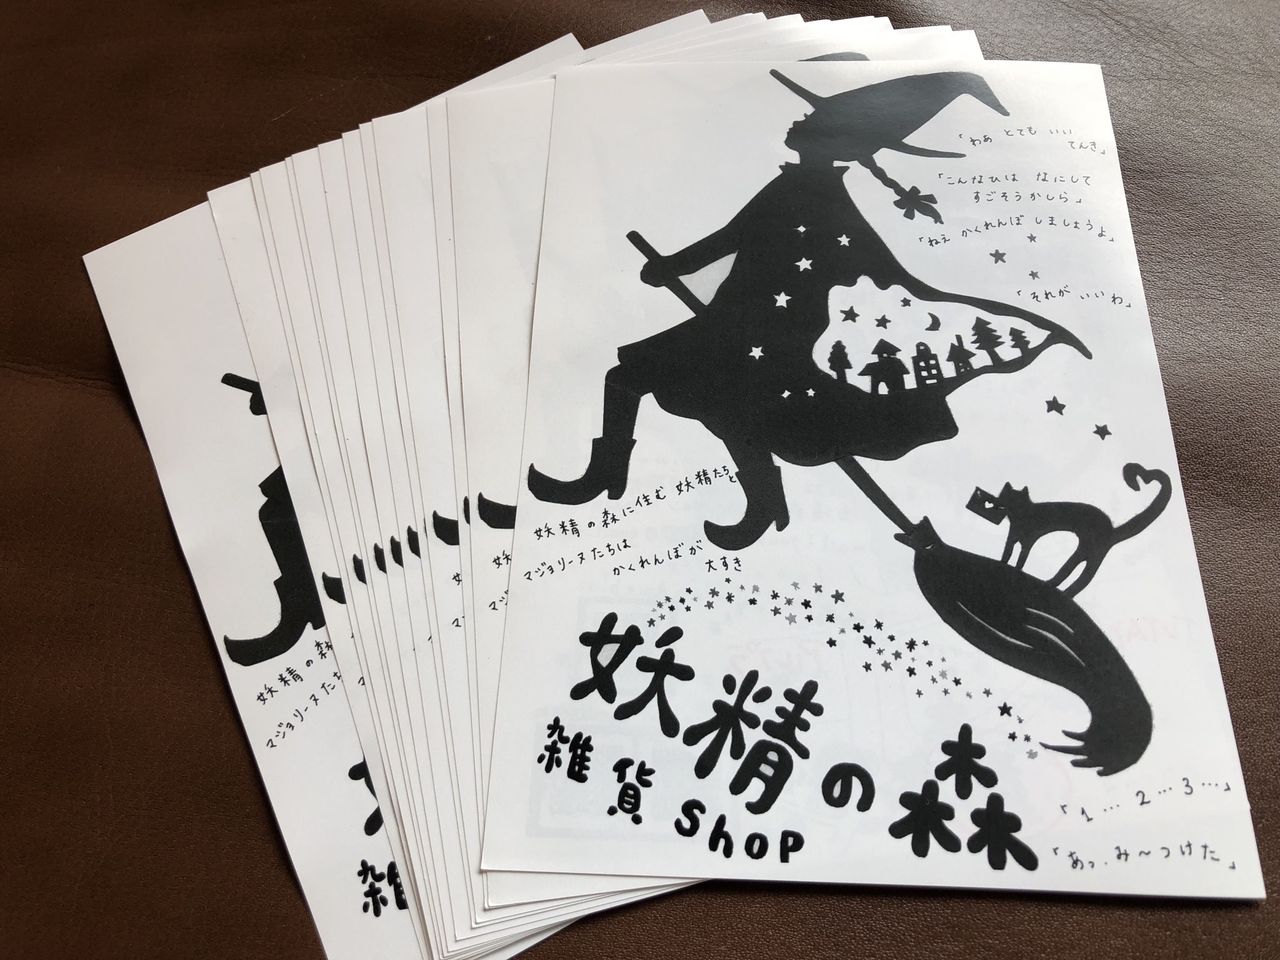 「わあ とても いい
てんき」
「こんなひは なにして
すごそうかしら」
「ねえ かくれんぼ しましょうよ」
「それが いいわ」
妖精の森に住む 妖精たちと
マジョリーヌたちは
かくれんぼが
大すき
妖精の森
雑貨 shop
「1… 2… 3…」
「あっ、み〜つけた」
妖精の森
マジョリーヌたち
雑